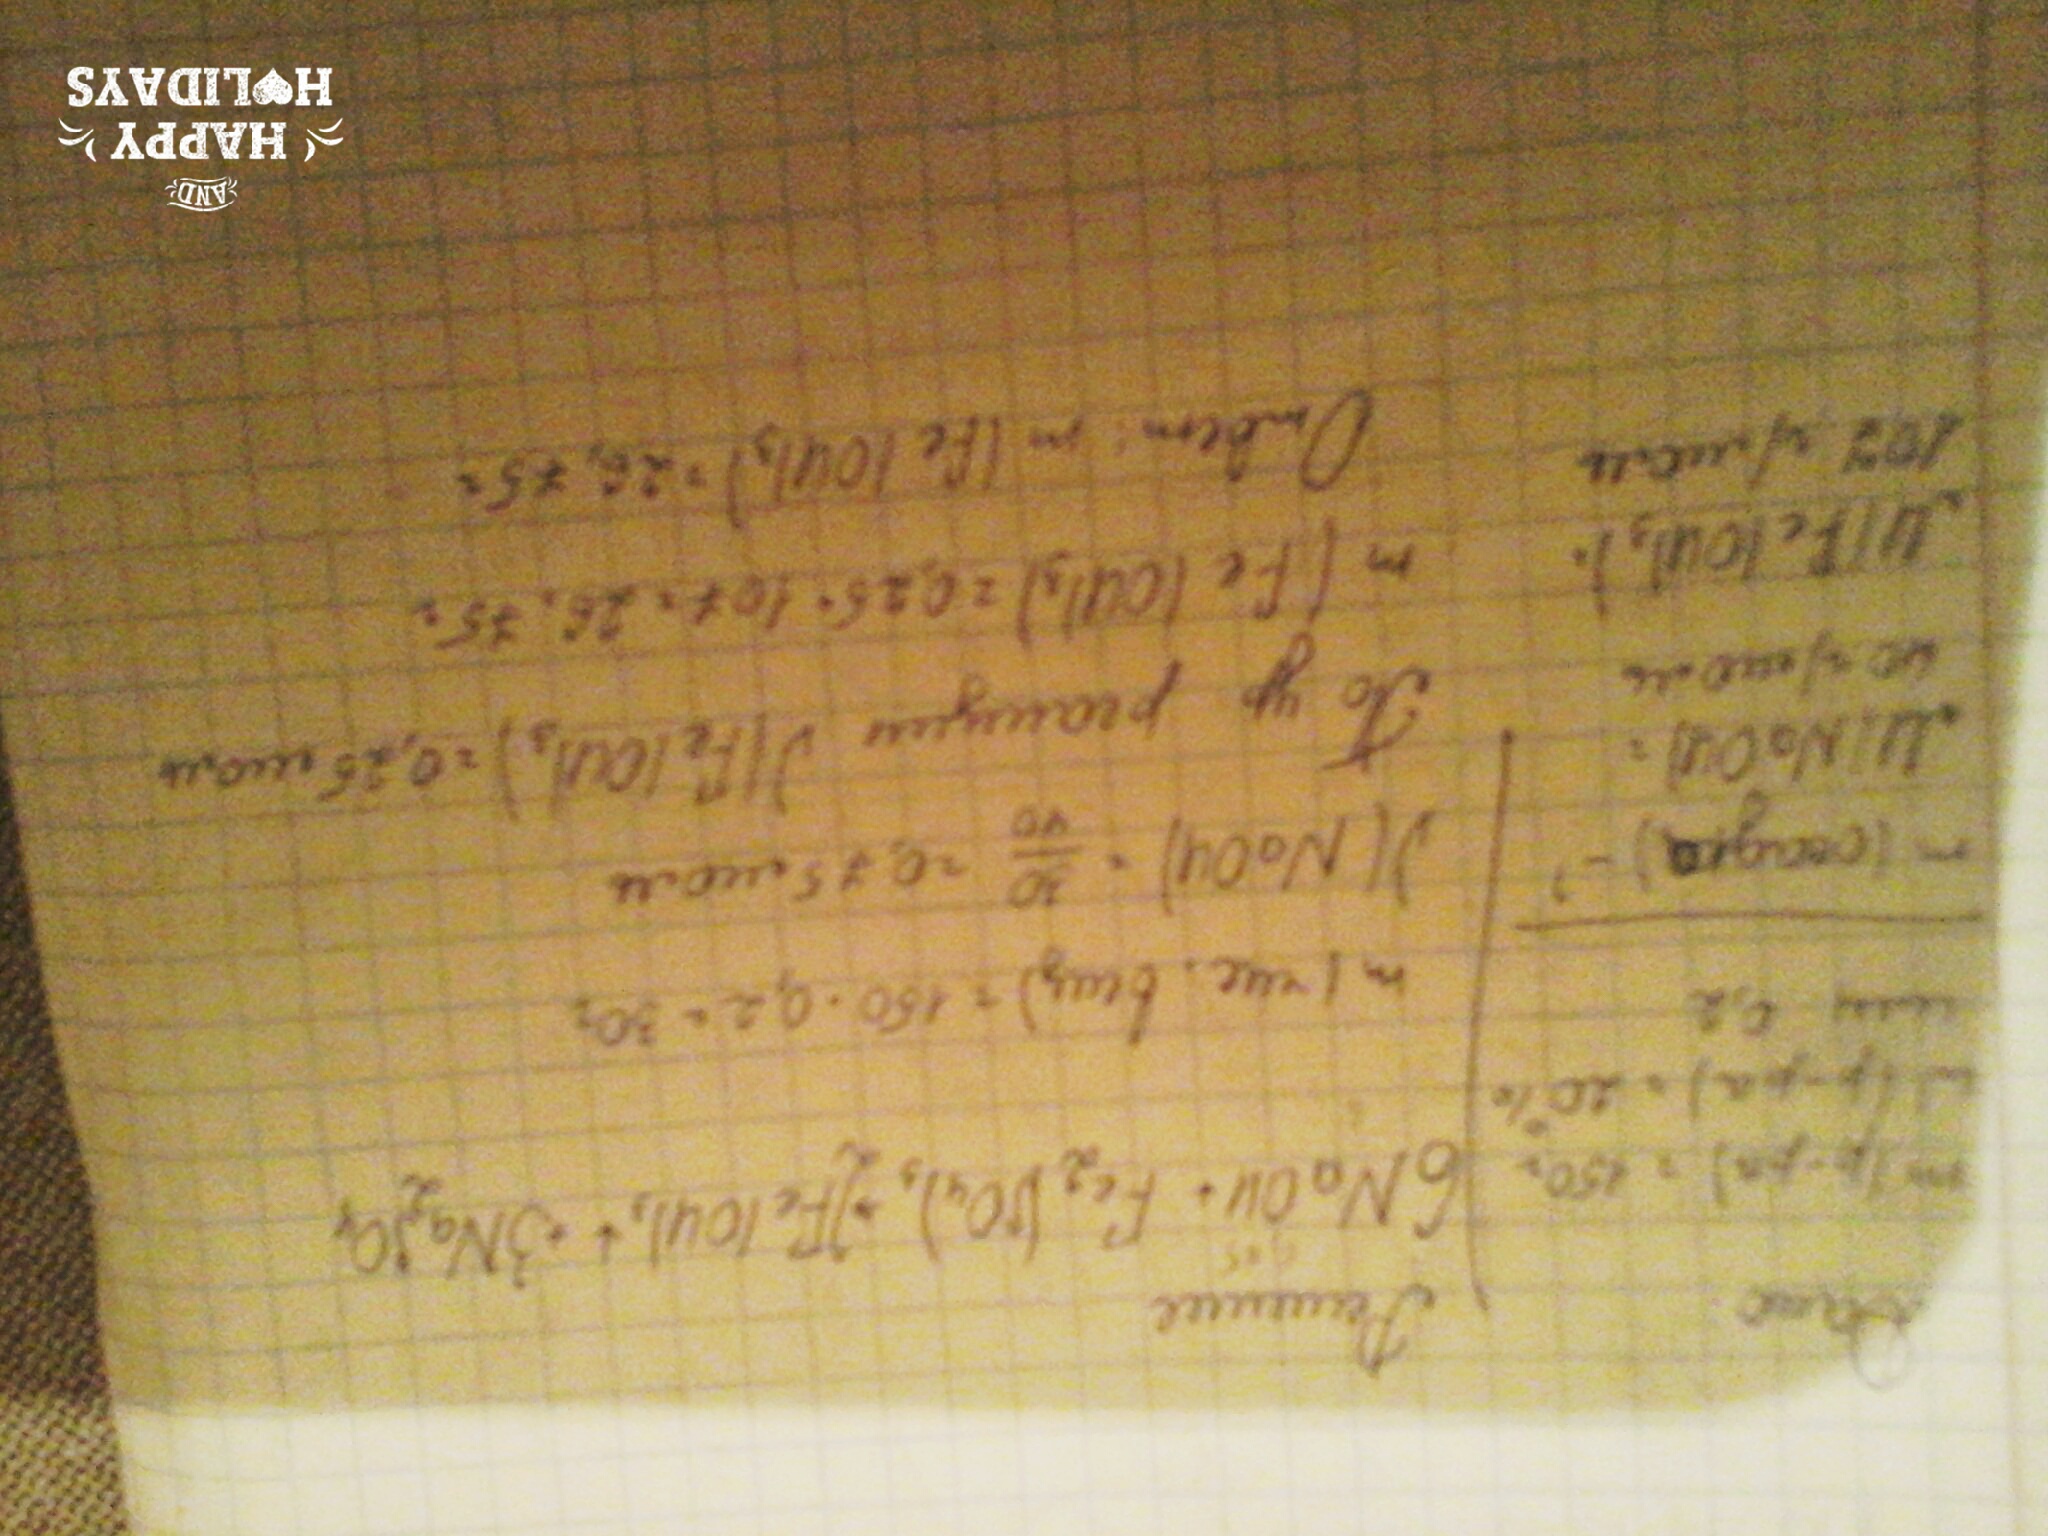 Дано
m(р-ра) = 150г
w(р-ра) = 20%
или 0,2
m(осадка) - ?
M(NaOH) =
40 г/моль
M(Fe(OH)₃).
107 г/моль
Решение
6NaOH + Fe₂(SO₄)₃ → 2Fe(OH)₃↓ + 3Na₂SO₄
m(чис. вещ) = 150 · 0,2 = 30г
ν(NaOH) = 30/40 = 0,75 моль
По ур реакции ν(Fe(OH)₃) = 0,25 моль
m(Fe(OH)₃) = 0,25 · 107 = 26,75г
Ответ: m(Fe(OH)₃) = 26,75г
AND
HAPPY
HOLIDAYS